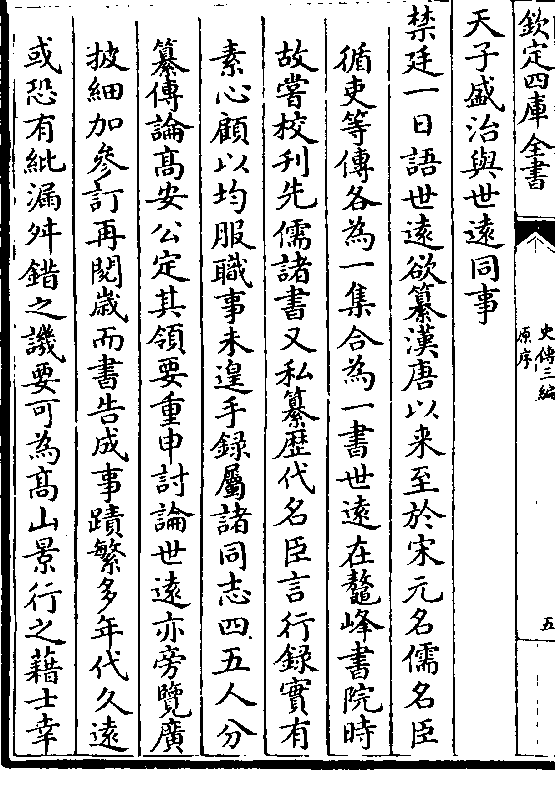 欽定四庫全書
史傳三編
原序
五
天子盛治與世遠同事
禁廷一日語世遠欲纂漢唐以来至於宋元名儒名臣
循吏等傳各為一集合為一書世遠在鼇峰書院時
故嘗校刋先儒諸書又私纂歴代名臣言行録實有
素心顧以均服職事未遑手録屬諸同志四五人分
纂傳論髙安公定其領要重申討論世遠亦旁覽廣
披細加參訂再閲歳而書告成事蹟繁多年代久遠
或恐有紕漏舛錯之譏要可為髙山景行之藉士幸